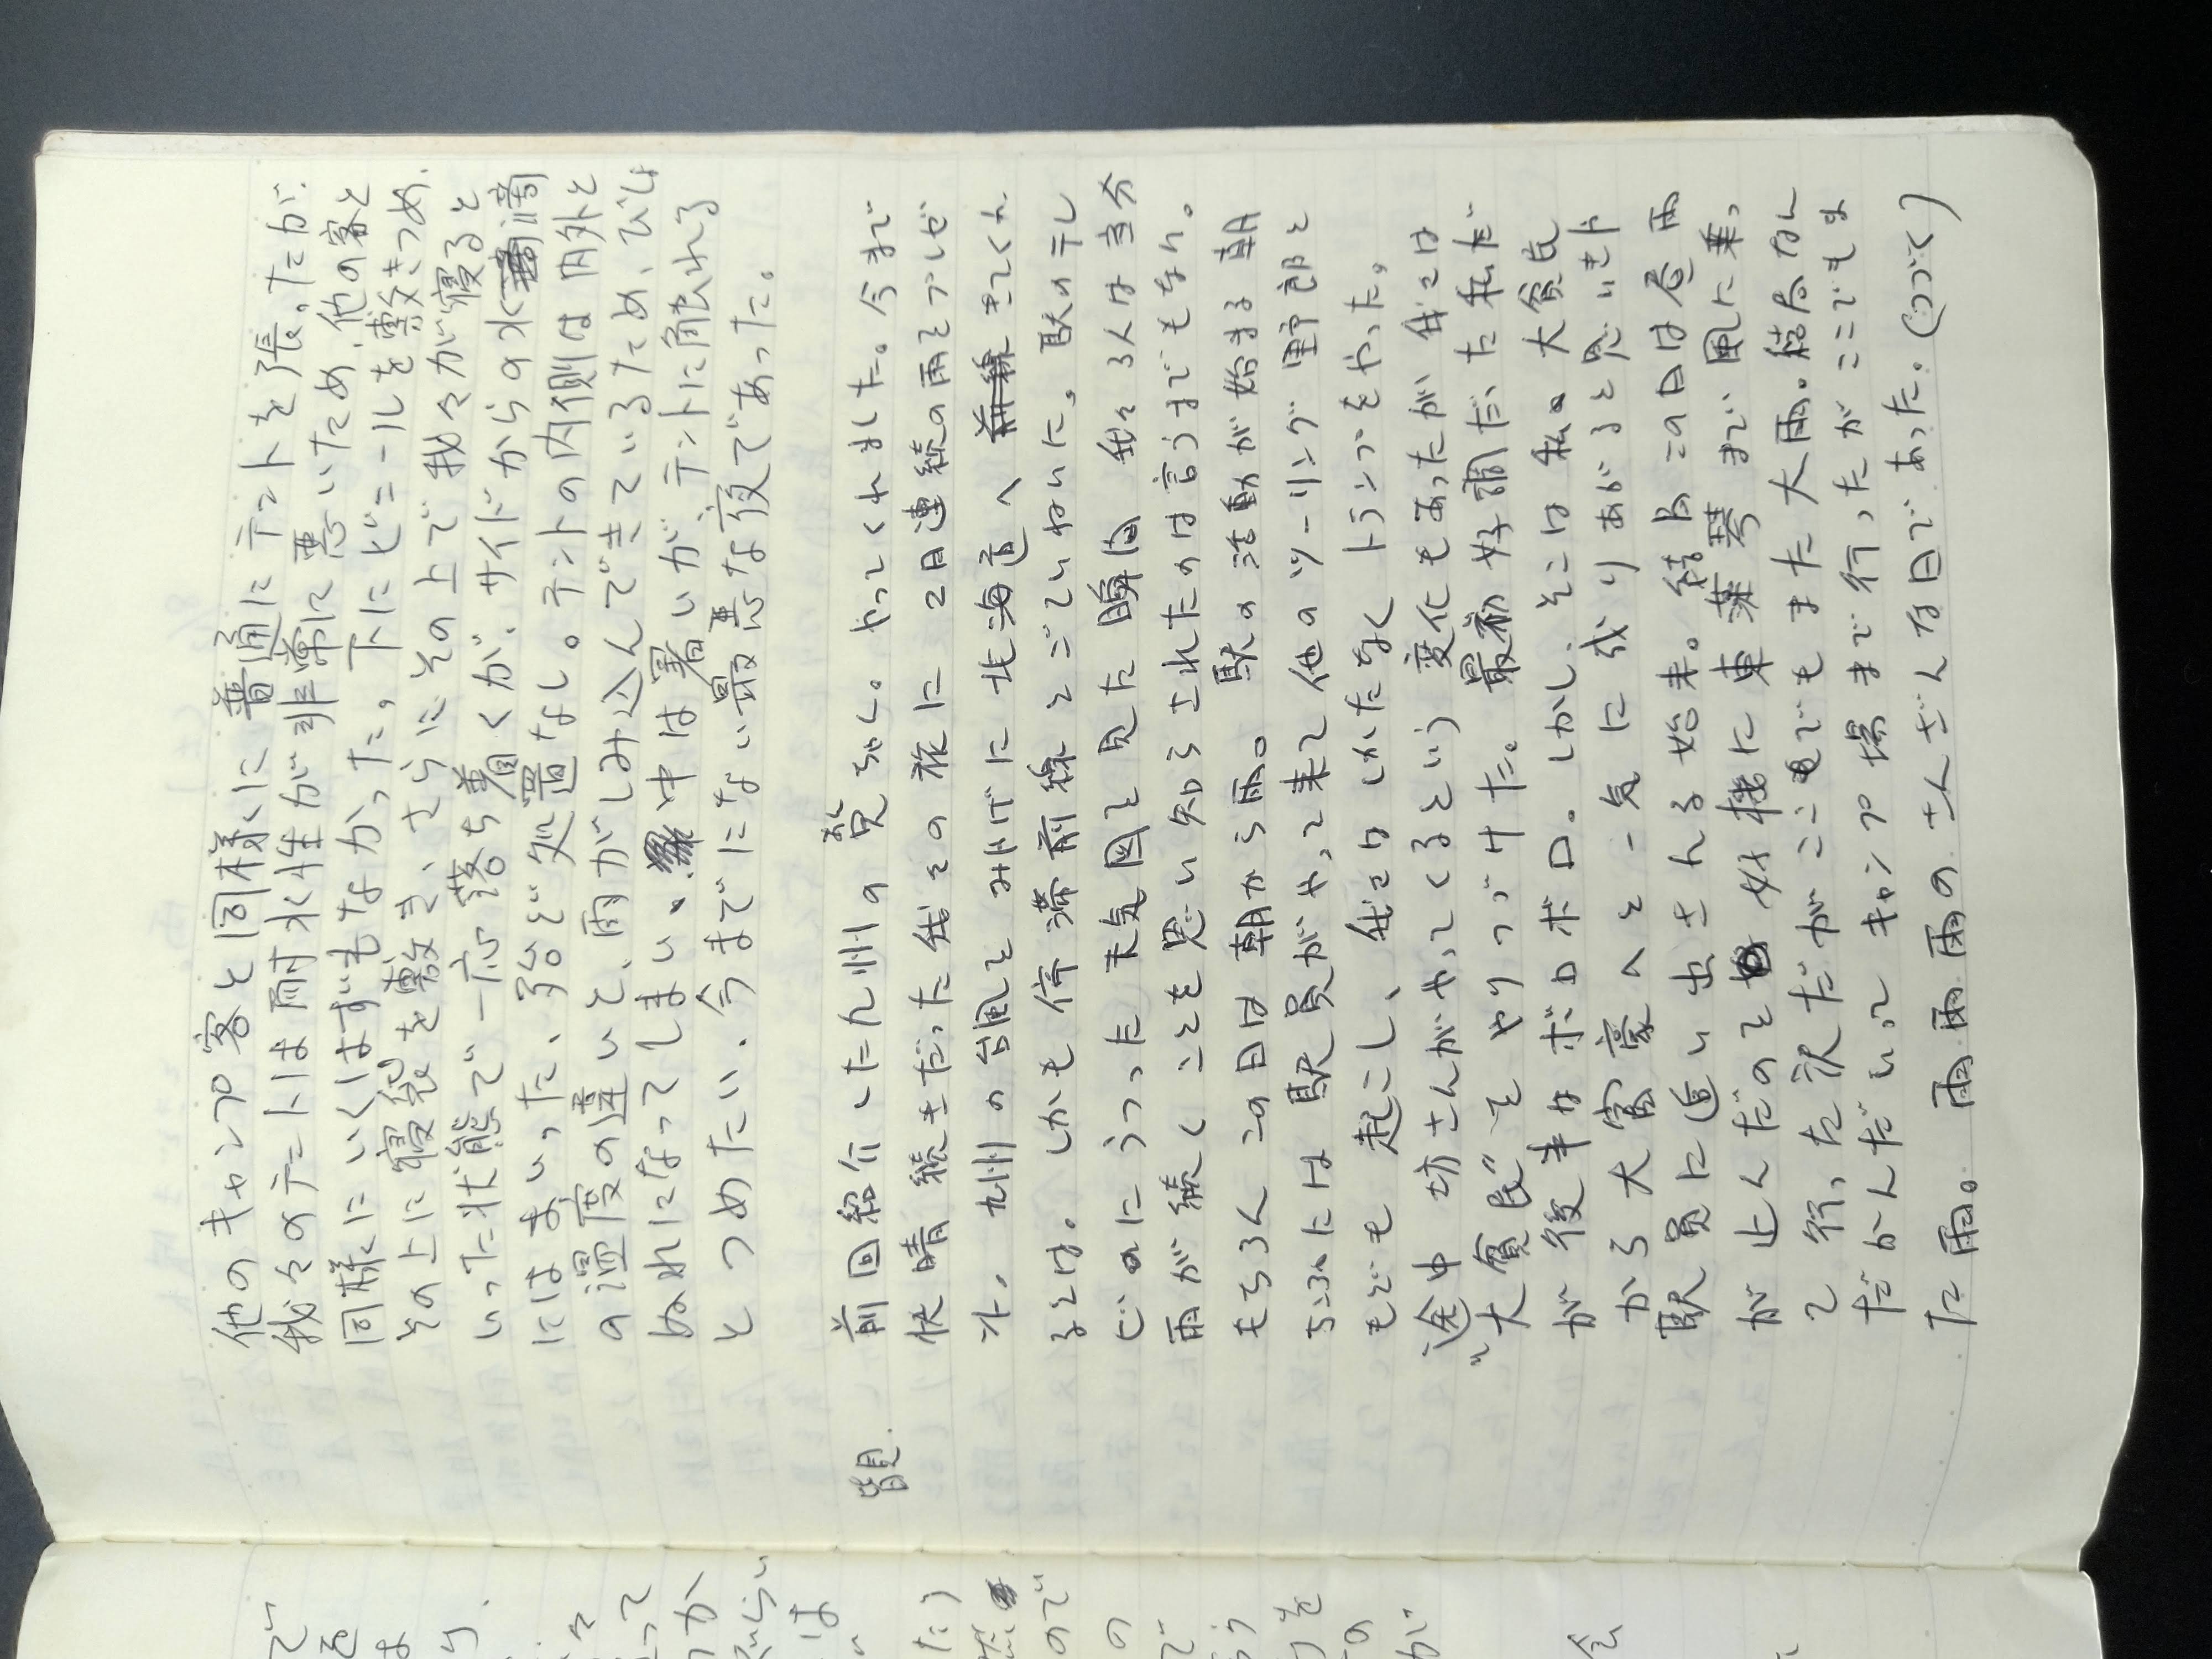 他のキャンプ客と同様に普通にテントを張ったが、
我々のテントは耐水性が非常に悪いため、他の客と
同様にいくはずもなかった。下にビニールを敷きつめ、
その上に寝袋を敷き、さらにその上で我々が寝ると
いった状態で一応落ち着くが、サイドからの水滴
にはまいった、殆ど処置なし。テントの内側は内外と
の温度の違いと、雨がしみ込んできているため、びしょ
ぬれになってしまい、中は暑いが、テントに触れる
とつめたい、今までにない最悪な夜であった。
前回紹介した九州の覚ちゃく。やってくれました。今まで
快晴続きだった我々の旅に2日連続の雨をプレゼ
ント。九州の台風をみやげに北海道へきてくれ
るとは。しかも停滞前線とごていねいに。駅のテレ
ビにうつった天気図を見た瞬間我々3人は当分
雨が続くことを思い知らされたのは言うまでもない。
もち3人この日は朝から雨。駅の活動が始まる朝
5:30には駅員がやって来て他のツーリング野郎と
もども起こし、我々はしかたなくトランプをやった。
途中坊さんがやってくるという変化もあったが我々は
"大貧民"をやりつづけた。最初好調だった私だ
が後半はボロボロ。しかし、そこは私。大貧民
から大富豪へと一気に成りあがると思いきや
駅員に追い出される始末。結局この日は昼雨
が止んだのを好機に東藻琴まで風に乗っ
て行った訳だがここでもまた大雨。結局なん
だかんだいってキャンプ場まで行ったがここでもま
た雨。雨雨雨雨のさんざんな日であった。(つづく)
皆見.